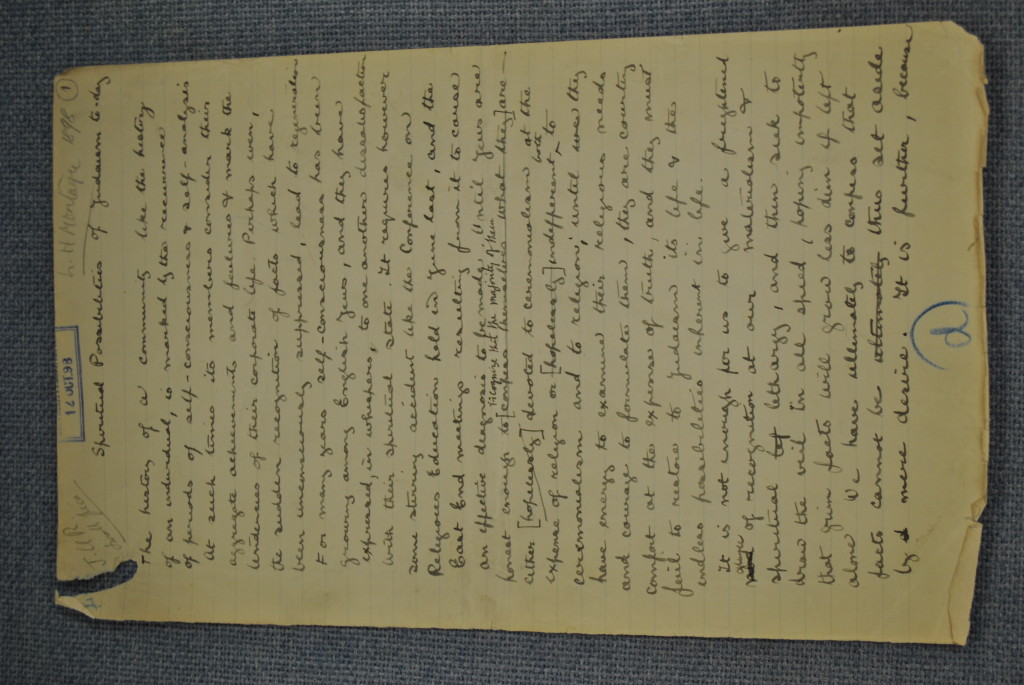 L. H. Montagu 1898 ①
16 OCT 93
J.Q.R.
Spiritual Possibilities of Judaism to-day
The history of a community like the history
of an individual, is marked by the recurrence
of periods of self-consciousness & self-analysis
At such times its members consider their
aggregate achievements and failures & mark the
tendencies of their corporate life. Perhaps even,
the sudden recognition of facts which have
been unconsciously suppressed, lead to
For many years self-consciousness has been
growing among English Jews, and they have
expressed, in whispers, to one another dissatisfaction
with their spiritual state. It requires however
some stirring accident like the Conference on
Religious Education held in June last, and the
East End meetings resulting from it to cause
an effective diagnosis to be made. Until Jews are
recognise that the majority of them
honest enough to [confess themselves what they] are —
either [hopelessly] devoted to ceremonialism at the
expense of religion or [hopelessly] indifferent, both to
ceremonialism and to religion; until
have energy to examine their religious needs
and courage to formulate them, they are courting
comfort at the expense of truth, and they must
fail to restore to Judaism its life & the
endless possibilities inherent in life.
It is not enough for us to give a frightened
glance of recognition at our materialism &
spiritual lethargy, and then seek to
draw the veil in all speed, hoping impotently
that grim facts will grow less dim if left
alone We have ultimately to confess that
facts cannot be ultimately thus set aside
by mere desire. It is further, because
d